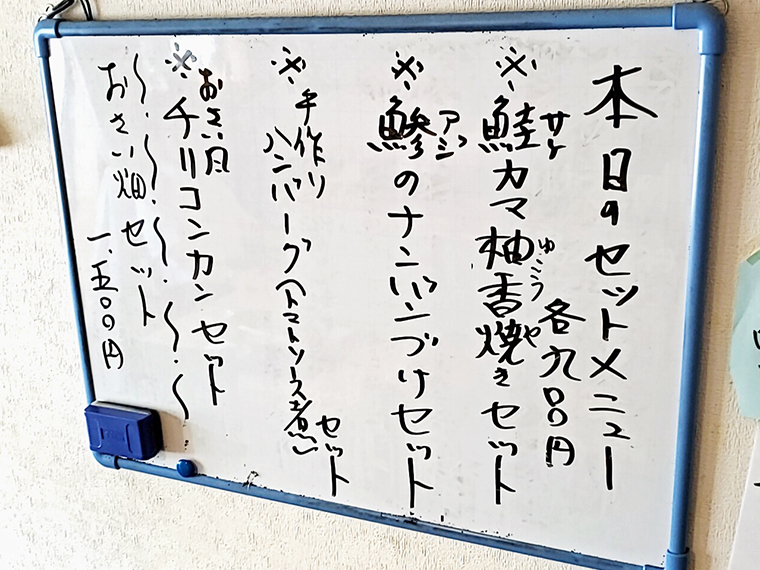 本日のセットメニュー
各九〇〇円
サケ ゆこうや
※鮭カマ柚香焼きセット
アジ
※鯵のナンバンづけセット
※手作り
ハンバーグ(トマトソース煮)
セット
おさい風
※チリコンカンセット
〜・〜・〜・〜・〜
おさい畑セット
一、五〇〇円